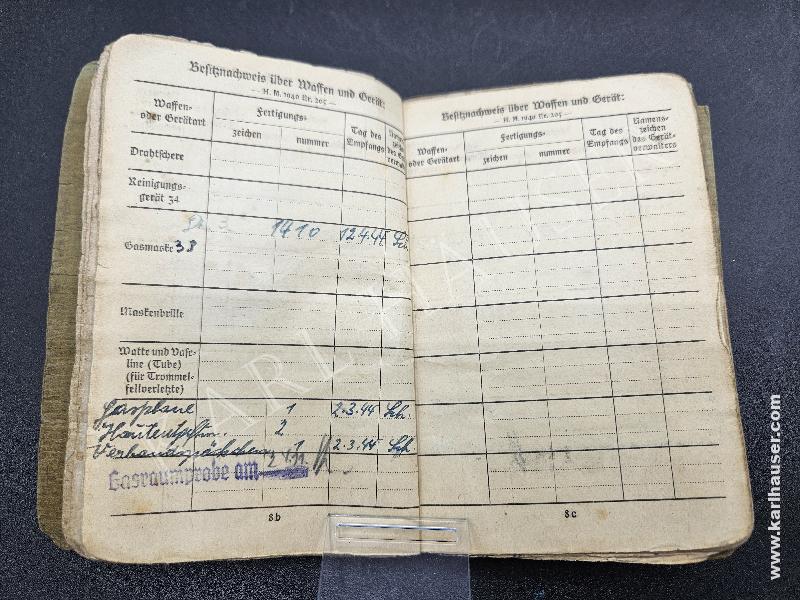 Besitznachweis über Waffen und Gerät:
— H. M. 1940 Nr. 205 —
Waffen-
oder Gerätart
Fertigungs-
zeichen
nummer
Tag des
Empfangs
Drahtschere
Reinigungs-
gerät 34
Gasmaske 38
1410
12.4.44
Maskenbrille
Watte und Vase-
line (Tube)
(für Trommel-
fellverletzte)
Gasplane 1 2.3.44 Sch.
2
Verbandspäckchen 1 2.3.44 Sch
Gasraumprobe am
8b
Besitznachweis über Waffen und Gerät:
— H. M. 1940 Nr. 205 —
Waffen-
oder Gerätart
Fertigungs-
zeichen
nummer
Tag des
Empfangs
Namens-
zeichen
des Gerät-
verwalters
8c
KARL HAUSER
www.karlhauser.com